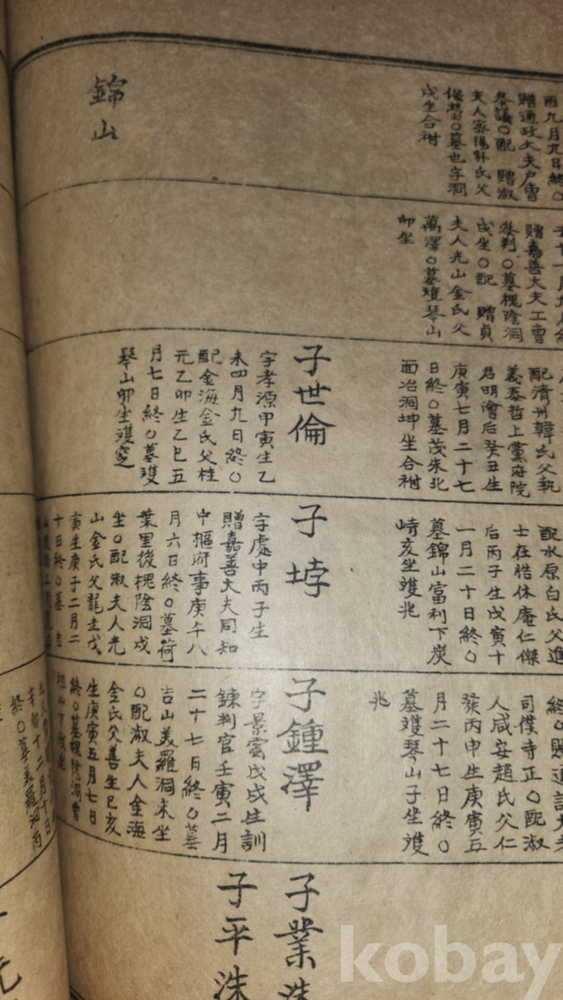 酉九月九日終〇
贈通政大夫戶曹
參議〇配 贈淑
夫人密陽朴氏父
〇墓也字洞
戌坐合祔
錦山
贈嘉善大夫工曹
參判〇墓槐陰洞
戌坐〇配 贈貞
夫人光山金氏父
萬澤〇墓雙琴山
卯坐
配淸州韓氏父執
義泰哲上黨府院
君明澮后癸丑生
庚寅七月二十七
日終〇墓茂朱北
面冶洞坤坐合祔
子世倫
字孝源甲寅生乙
未四月九日終〇
配金海金氏父桂
元乙卯生乙巳五
月七日終〇墓雙
琴山卯坐雙窆
配水原白氏父進
士在皓休庵仁傑
后丙子生戊寅十
一月二十日終〇
墓錦山富利下炭
峙亥坐雙兆
子㙛
字處中丙子生
贈嘉善大夫同知
中樞府事庚午八
月六日終〇墓荷
葉里後槐陰洞戌
坐〇配淑夫人光
山金氏父龍圭戊
寅生庚子二月二
十日終〇墓
終〇贈通訓大夫
司僕寺正〇配淑
人咸安趙氏父仁
燦丙申生庚寅五
月二十七日終〇
墓雙琴山子坐雙
兆
子鍾澤
字景雲戊戌生訓
鍊判官壬寅二月
二十七日終〇墓
吉山美羅洞未坐
〇配淑夫人金海
金氏父善生己亥
生庚寅五月七日
終〇墓槐陰洞曾
祖山下
辛卯十二月十日
終〇墓美羅洞酉
子業洙
子平洙
元
kobay